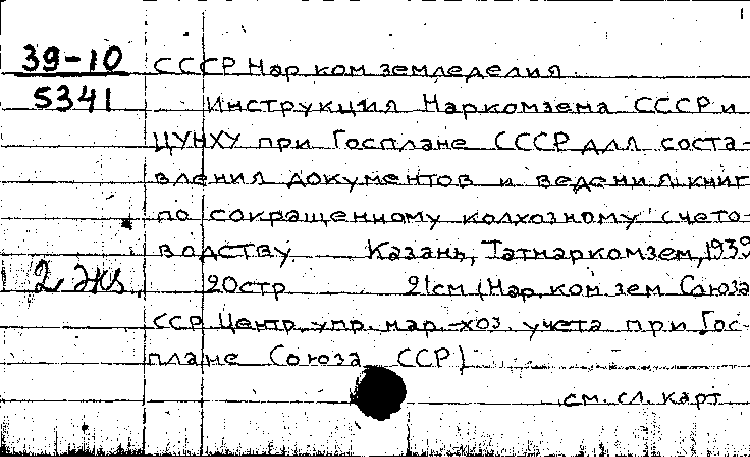 39-10
5341
2 экз.
СССР Нар ком земледелия
Инструкция Наркомзема СССР и
ЦУНХУ при Госплане СССР для соста-
вления документов и ведения книг
по сокращенному колхозному счето-
водству Казань, Татнаркомзем, 1939
20стр 21см (Нар. ком. зем. Союза
ССР Центр. упр. нар.-хоз. учета при Гос-
плане Союза ССР)
см. сл. карт